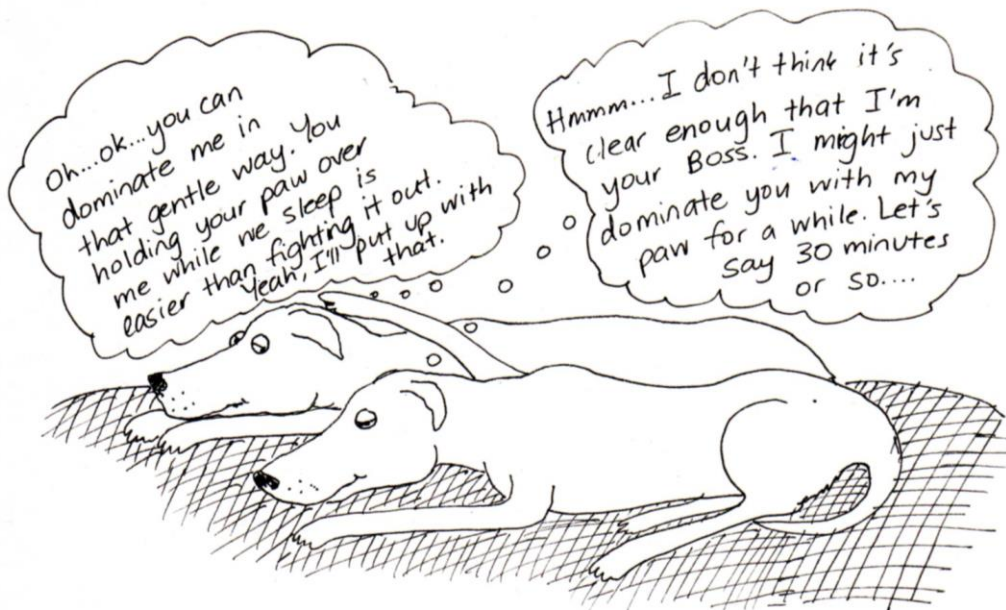 Oh...ok...you can
dominate me in
that gentle way. You
holding your paw over
me while we sleep is
easier than fighting it out.
Yeah, I'll put up with
that.
Hmmm...I don't think it's
clear enough that I'm
your Boss. I might just
dominate you with my
paw for a while. Let's
say 30 minutes
or so....